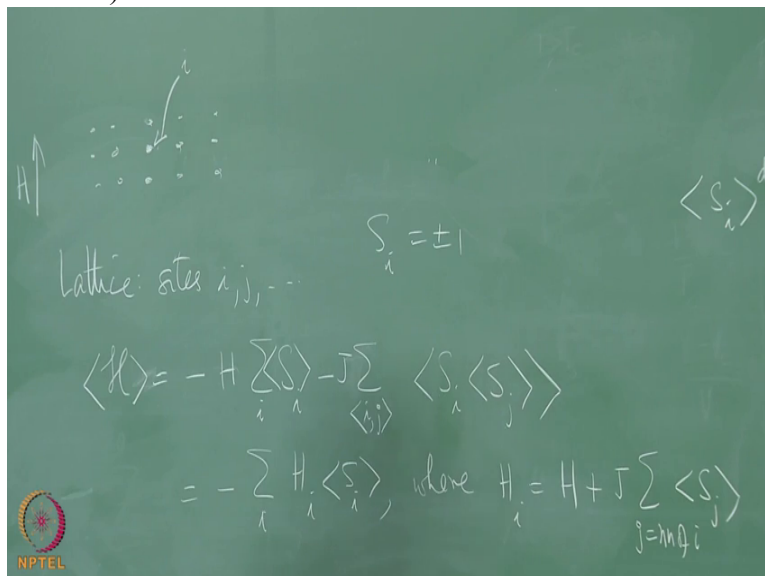 i
H
⟨S_i⟩
S_i = ±1
Lattice: sites i, j, ...
⟨ℋ⟩ = - H ∑_i ⟨S_i⟩ - J ∑_⟨i,j⟩ ⟨S_i ⟨S_j⟩⟩
= - ∑_i H_i ⟨S_i⟩, where H_i = H + J ∑_{j=nn of i} ⟨S_j⟩
NPTEL